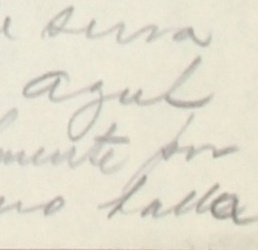 serra
azul
mente por
no halla